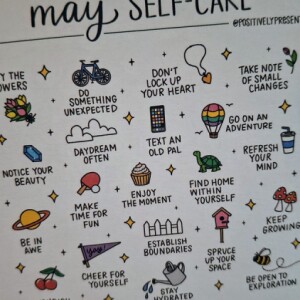 may SELF-CARE
@POSITIVELYPRESENT
THE
FLOWERS
DO
SOMETHING
UNEXPECTED
DON'T
LOCK UP
YOUR HEART
TAKE NOTE
OF SMALL
CHANGES
NOTICE YOUR
BEAUTY
DAYDREAM
OFTEN
TEXT AN
OLD PAL
GO ON AN
ADVENTURE
REFRESH
YOUR
MIND
MAKE
TIME FOR
FUN
ENJOY
THE MOMENT
FIND HOME
WITHIN
YOURSELF
KEEP
GROWING
BE IN
AWE
yay!
CHEER FOR
YOURSELF
ESTABLISH
BOUNDARIES
SPRUCE
UP YOUR
SPACE
STAY
HYDRATED
BE OPEN TO
EXPLORATION